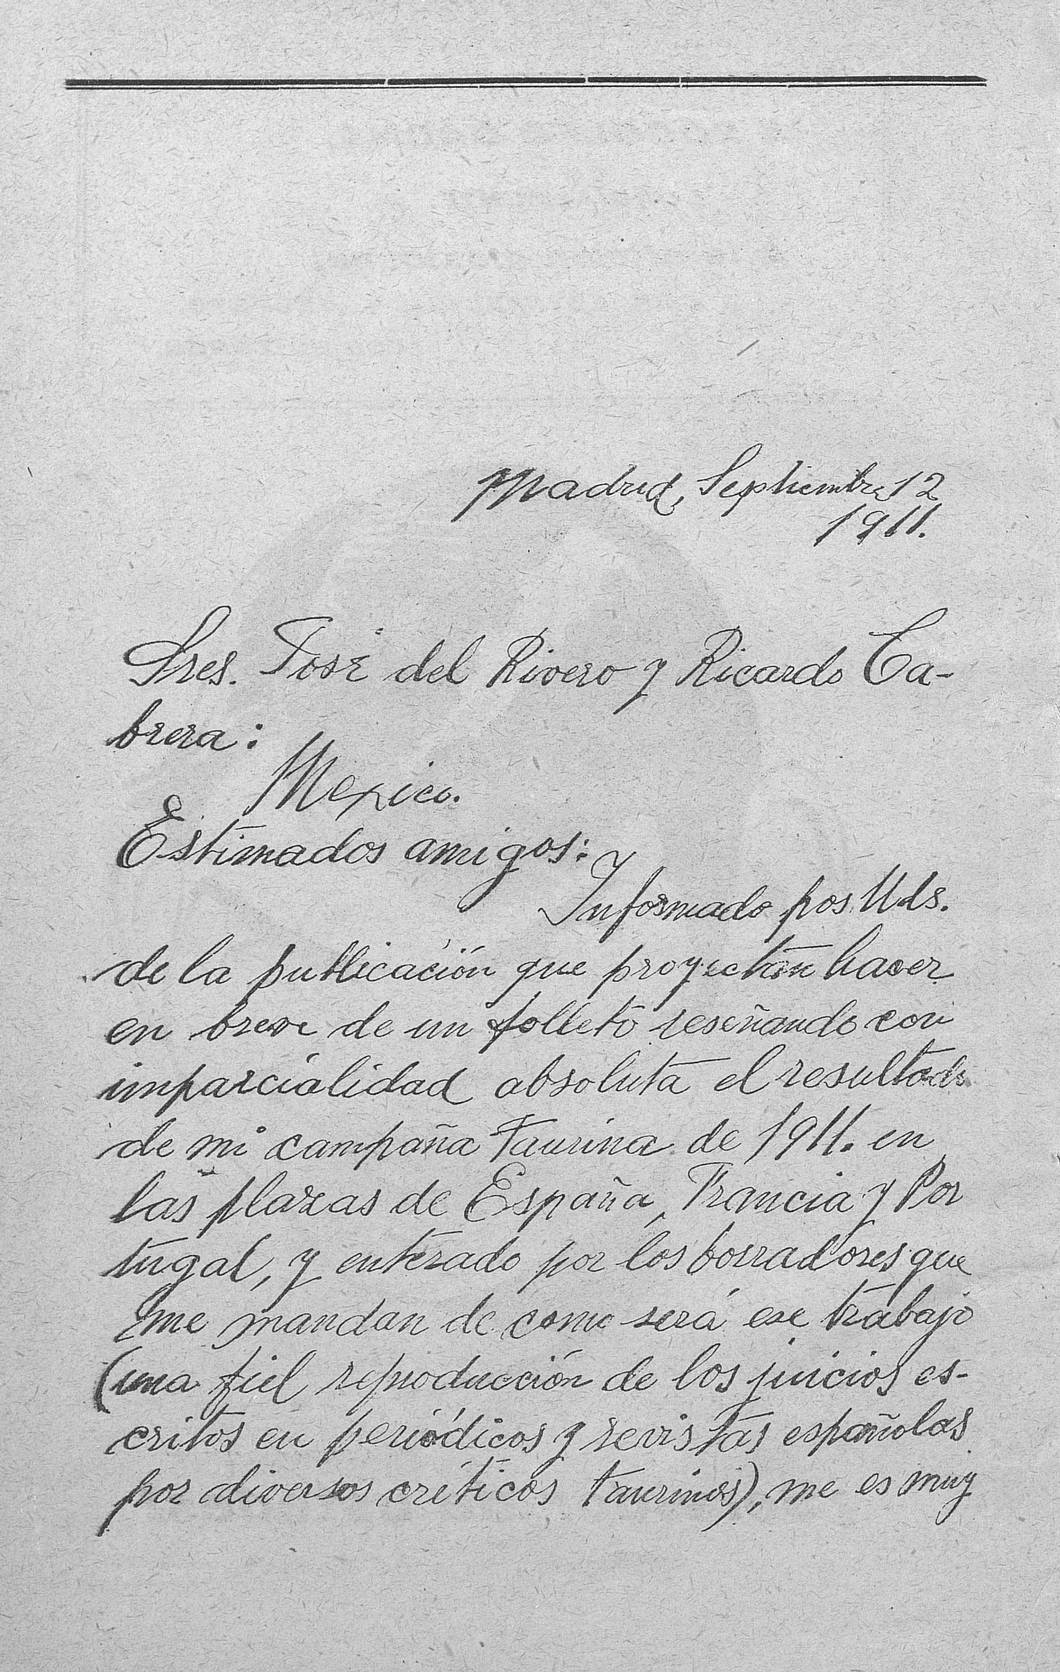 Madrid, Septiembre 12
1911.
Sres. José del Rivero y Ricardo Ca-
brera:
Mexico.
Estimados amigos:
Informado por Uds.
de la publicación que proyectan hacer
en breve de un folleto reseñando con
imparcialidad absoluta el resultado
de mi campaña taurina de 1911. en
las plazas de España, Francia y Por
tugal, y enterado por los borradores que
me mandan de como será ese trabajo
(una fiel reproducción de los juicios es-
critos en periódicos y revistas españolas
por diversos críticos taurinos), me es muy